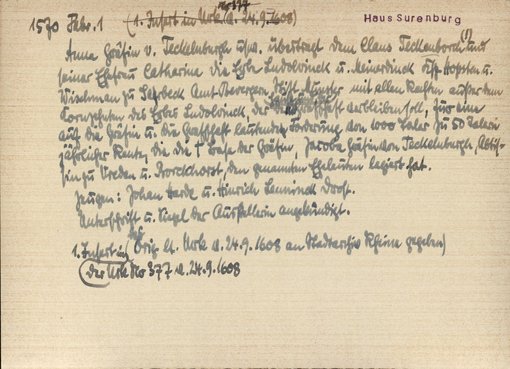 No 377
1570 Febr. 1 (1. Insert in Urk. v. 24.9.1608) Haus Surenburg
Anna Gräfin v. Tecklenburgh usw. überträgt dem Claus Tecklenborch (!) und
seiner Ehefrau Catharine die Erbe Ludolvinck u. Meinerdinck Ksp. Hopsten u.
Wischman zu Saxbeck Amt Bevergern Stift Münster mit allen Rechten außer dem
Kornzehnten des Erbes Ludolvinck, der verbleiben soll, für eine
auf die Gräfin u. die Grafschaft lautende Forderung von 1000 Taler zu 50 Talern
jährlicher Rente, die die † Base der Gräfin, Jacoba Gräfin von Tecklenburgh, Äbtis-
sin zu Vreden u. Borckhorst, den genannten Eheleuten legiert hat.
Zeugen: Johan Harde u. Hinrich Lenninck Drost.
Unterschrift u. Siegel der Ausstellerin angekündigt.
1. Insert in (Orig. d. Urk. v. 24.9.1608 an Stadtarchiv Rheine gegeben)
der Urk. No 377 v. 24.9.1608